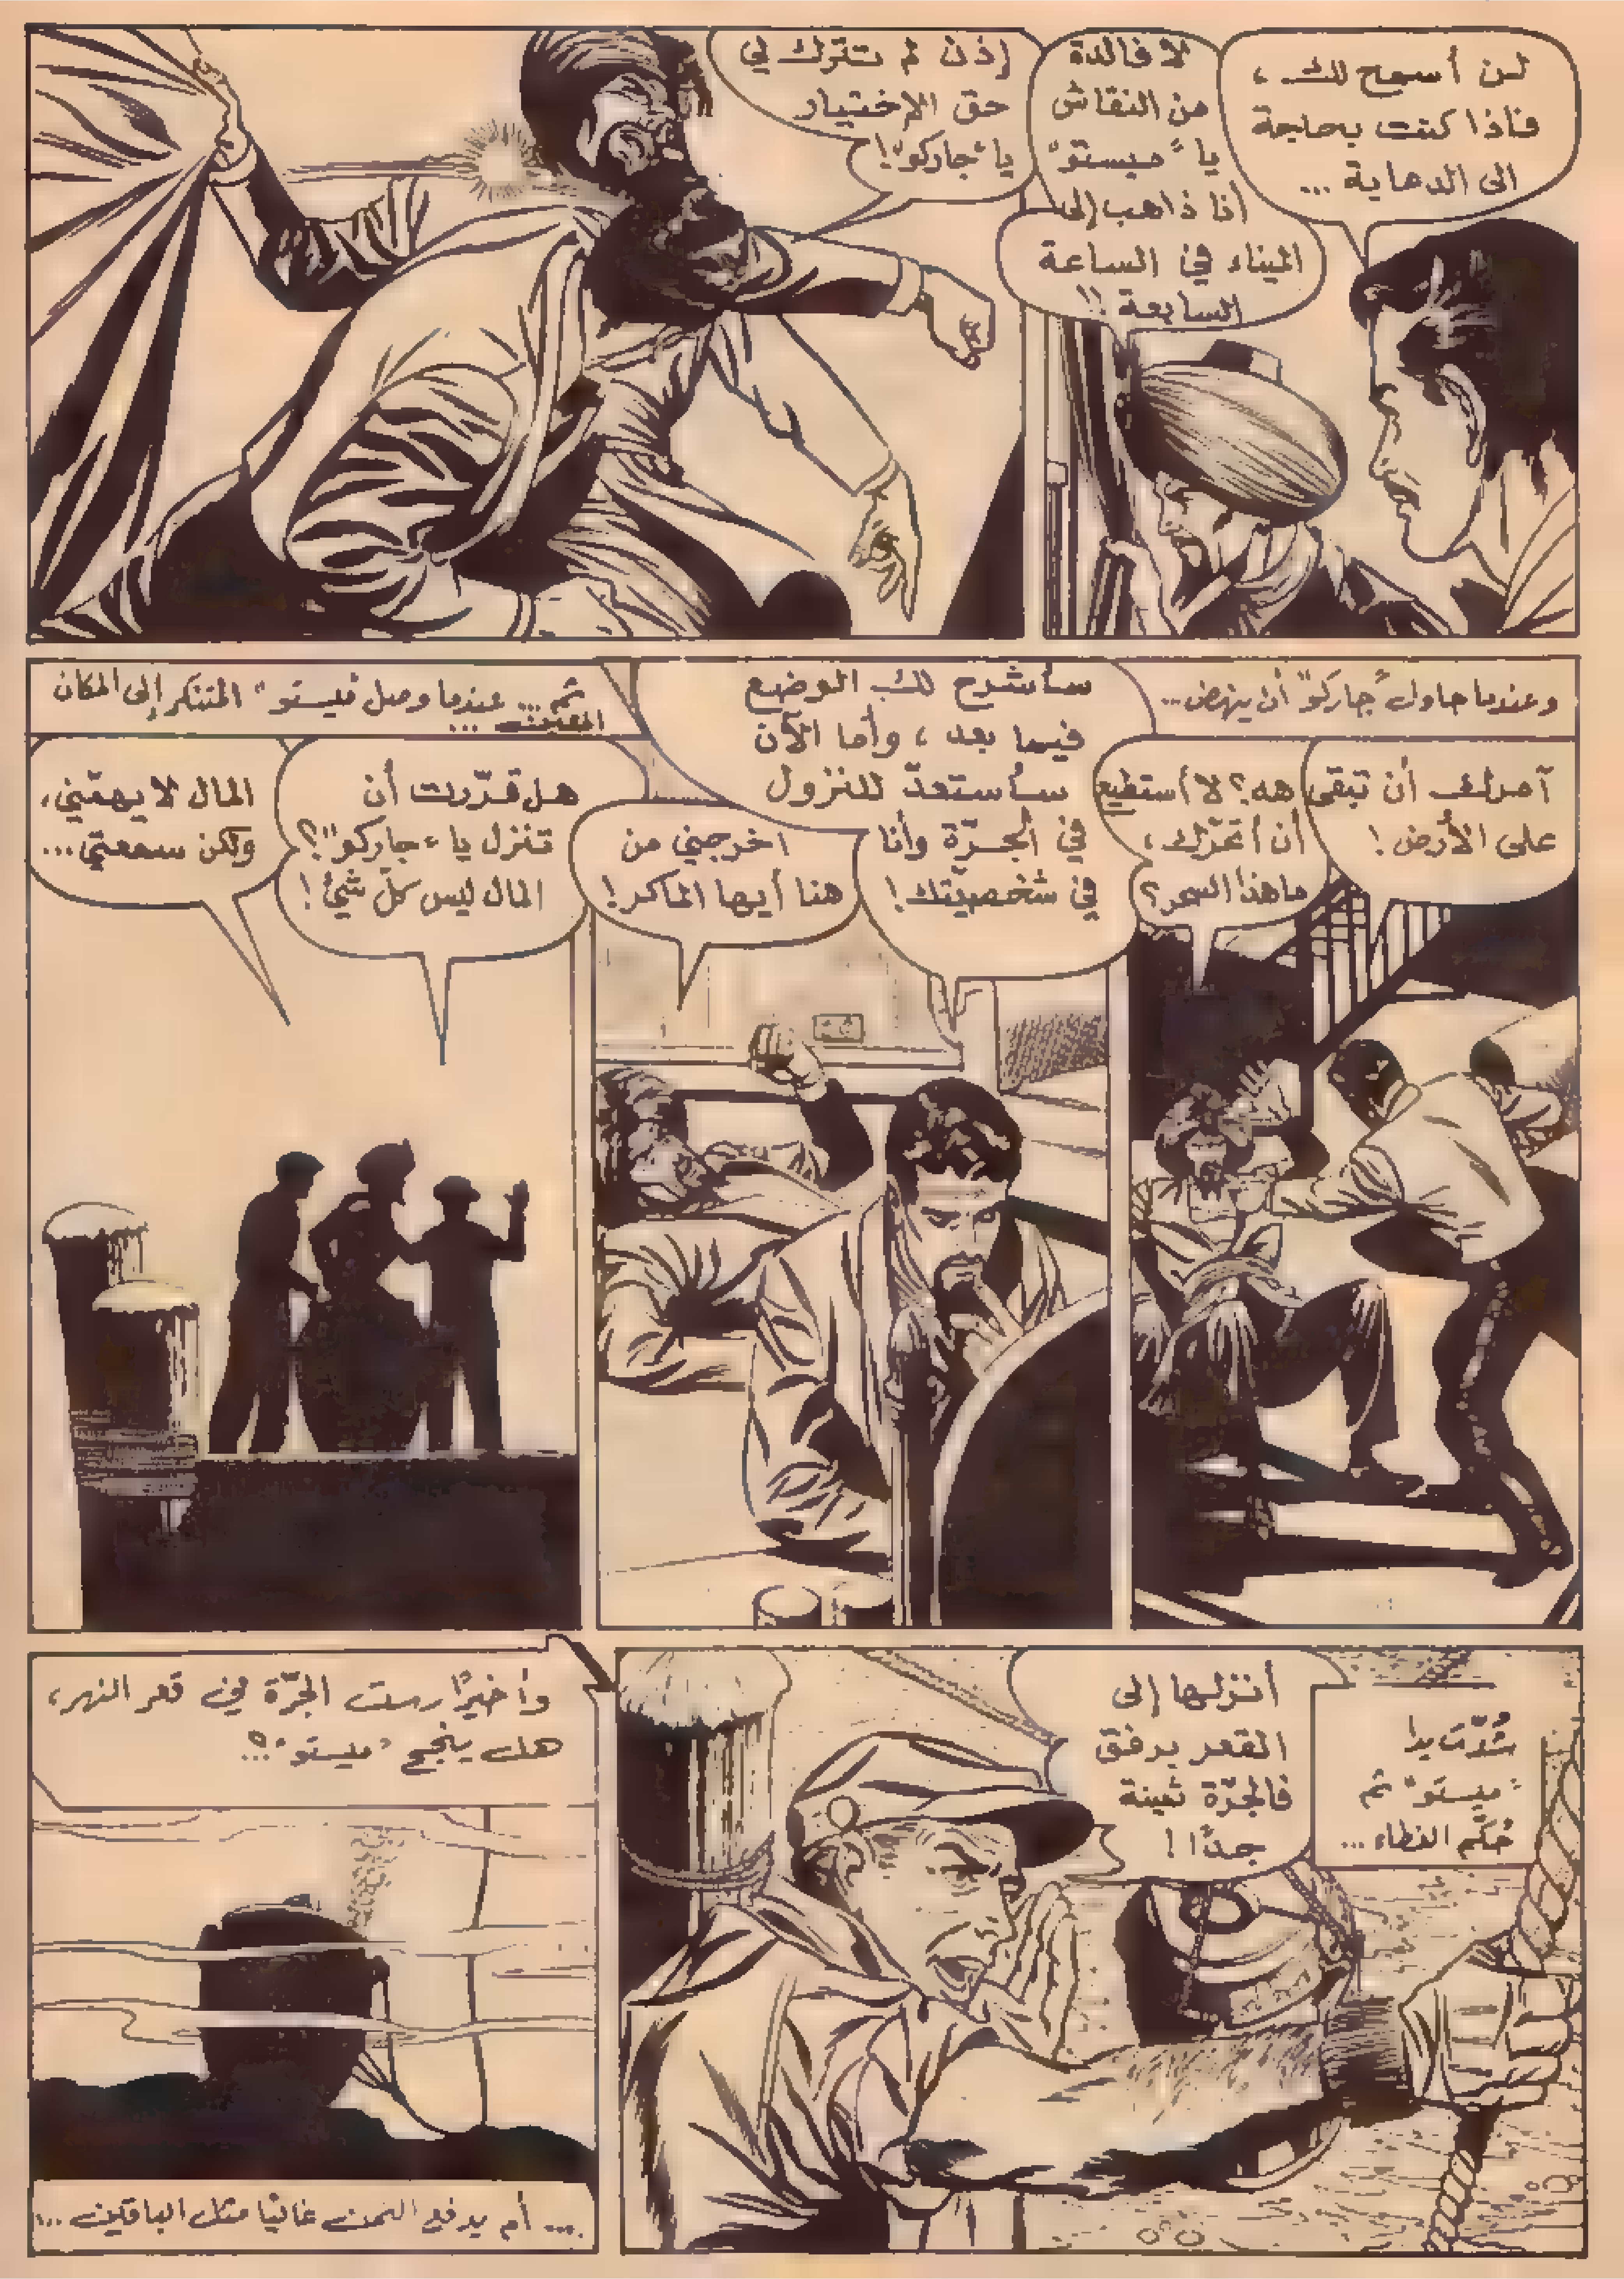 لن أسمح لك،
فاذا كنت بحاجة
الى الدعاية ...
لا فائدة
من النقاش
يا "ميستو"
أنا ذاهب إلى
الميناء في الساعة
السابعة !!
إذن لم تترك لي
حق الاختيار
يا "جاركو"!
وعندما حاول "جاركو" أن ينهض...
آمرك أن تبقى
على الأرض !
هه؟ لا أستطيع
أن أتحرّك،
ما هذا السحر؟
سأشرح لك الوضع
فيما بعد، وأما الآن
سأستعدّ للنزول
في الجرّة وأنا
في شخصيّتك!
اخرجني من
هنا أيها الماكر!
ثم ... عندما وصل "ميستو" المتنكر إلى المكان
المعيّن ...
هل قرّرت أن
تنزل يا "جاركو"؟
المال ليس كلّ شيء!
المال لا يهمّني،
ولكن سمعتي...
شُدّت يدا
"ميستو" ثم
حُكّم الغطاء ...
أنزلها إلى
القعر برفق
فالجرّة ثمينة
جدًا!
وأخيرًا رست الجرّة في قعر النهر،
هل ينجح "ميستو"؟..
... أم يدفع الثمن غاليًا مثل الباقين ...